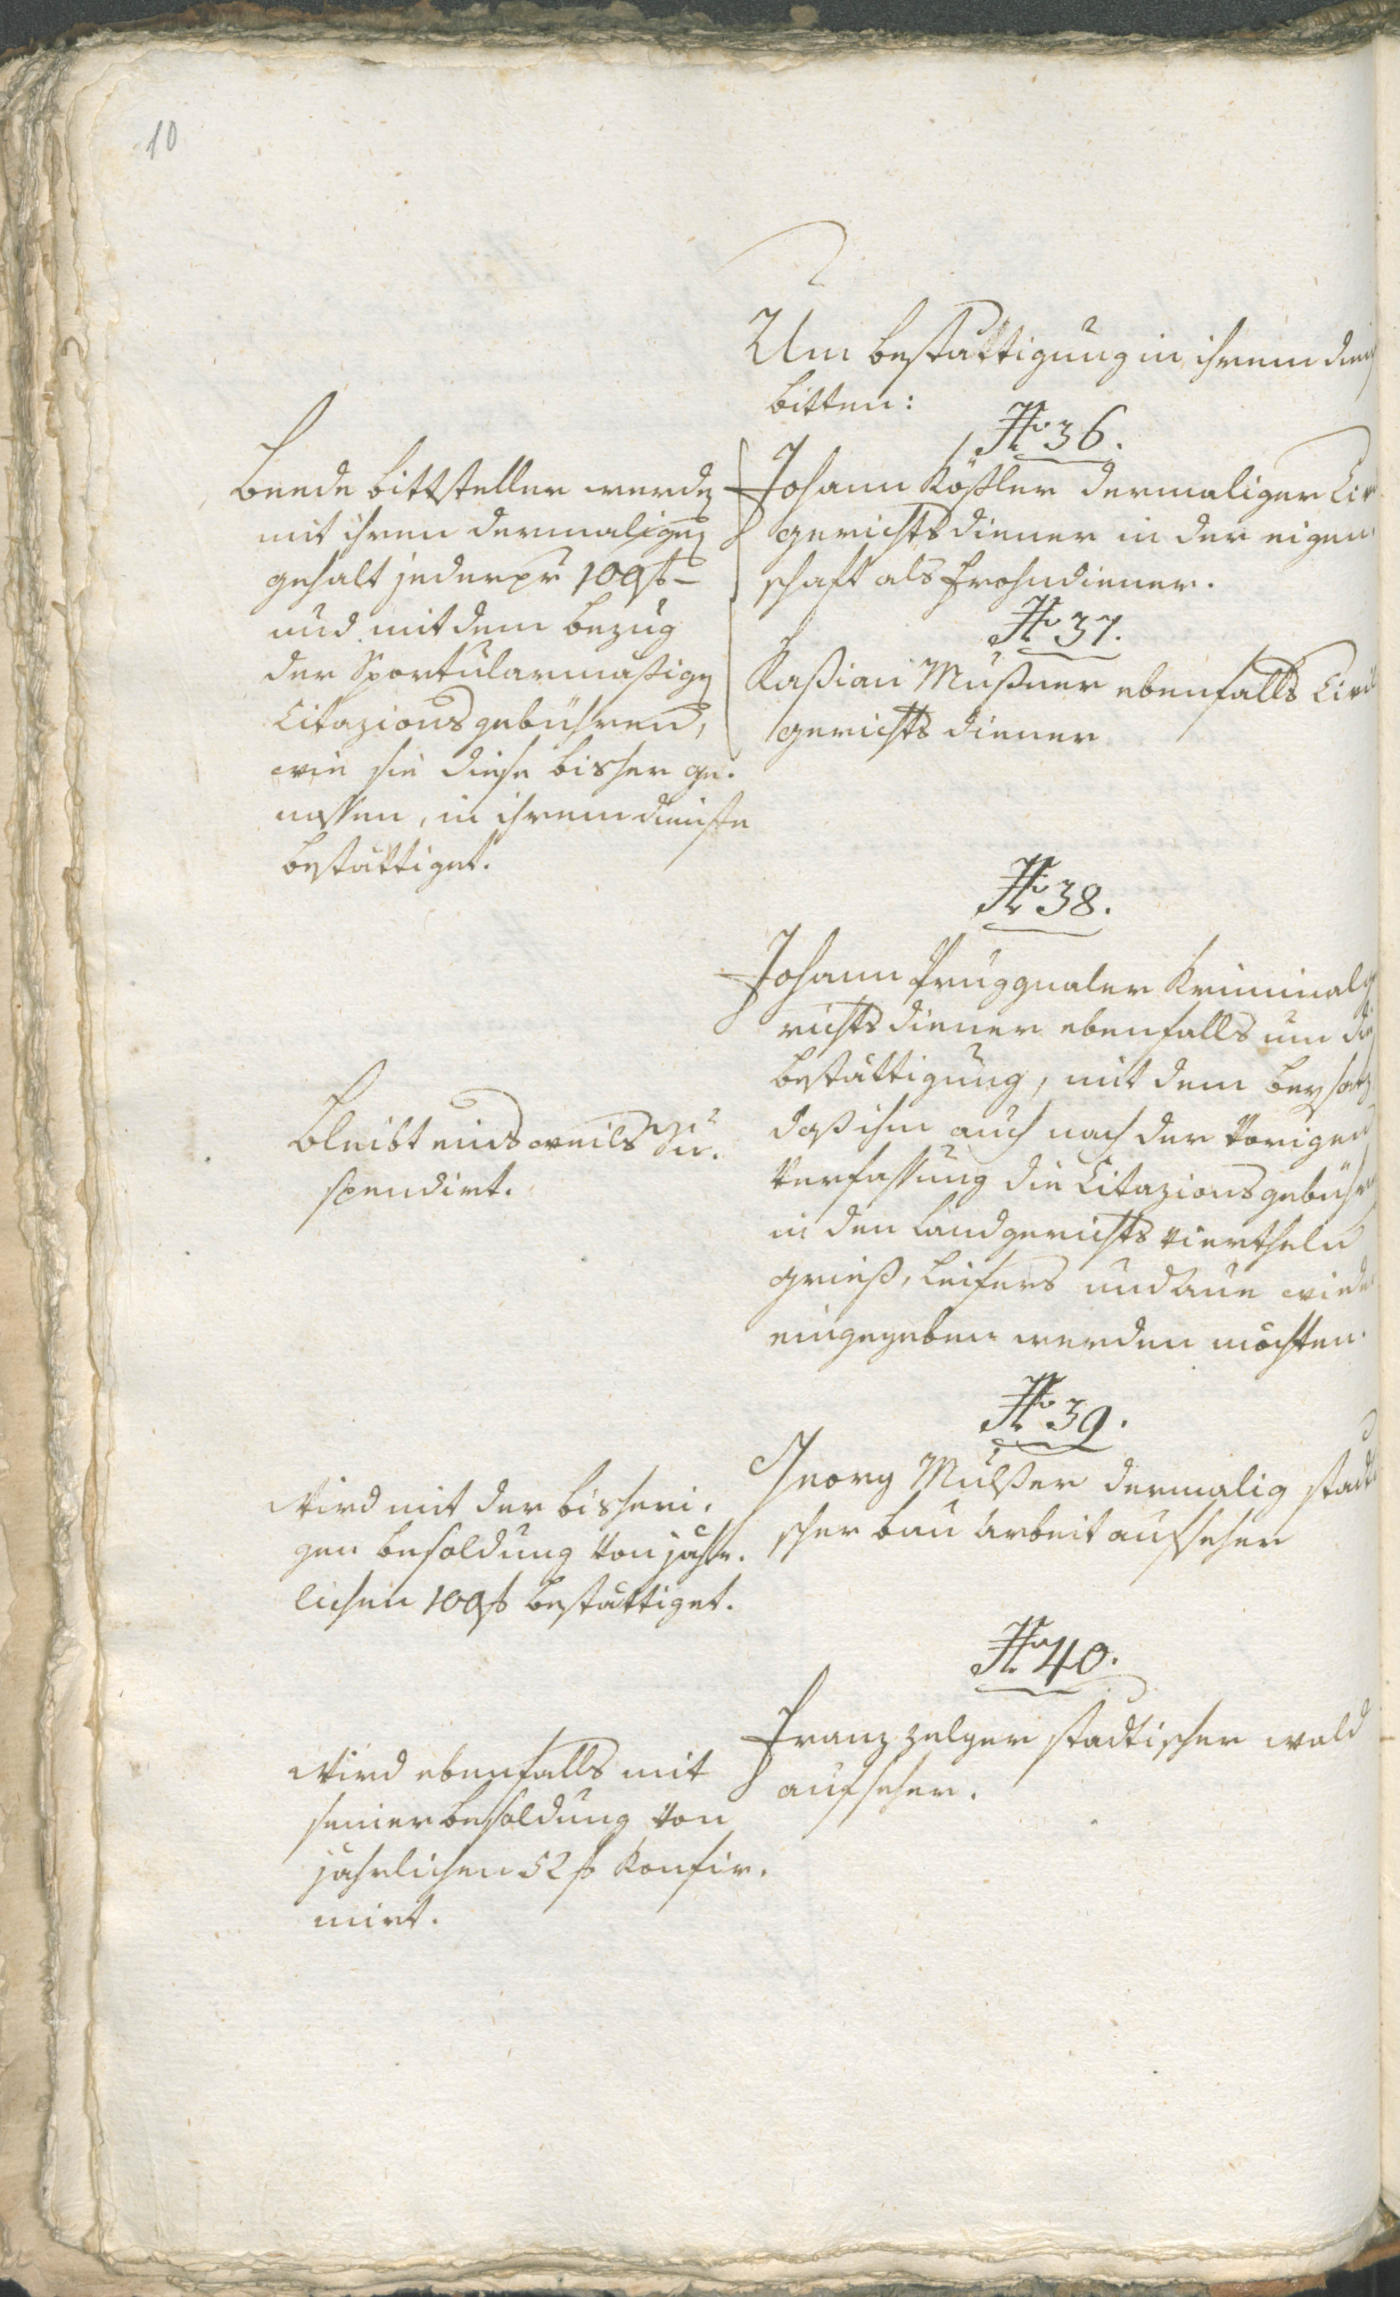 10
Um bestättigung in ihrem
bitten:
No 36.
Johann Kößler dermaliger
gerichtsdiener in der eigen
schaft als Frohndiener.
No 37.
Kaßian Mußner ebenfalls Civil
gerichts diener
Beede bittsteller werden
mit ihren dermaligen
gehalt jeder pr 100 f –
und mit dem bezug
der Sportularmäßigen
Citazionsgebühren,
wie sie diese bisher ge-
nossen, in ihrem dienste
bestättiget.
No 38.
Johann Prugnaler Kriminalge
richtsdiener ebenfalls um die
bestättigung, mit dem beysatz
daß ihm auch nach der vorigen
Verfassung die Citazionsgebühren
in den Landgerichts viertheln
Grieß, Leifers und Aue wieder
eingegeben werden möchten.
Bleibt eins weils su-
spendirt.
No 39.
Georg Mulser dermalig städti
scher bau arbeit aufseher
Wird mit der bisheri-
gen besoldung von jähr-
lichen 100 f bestättiget.
No 40.
Franz Zelger stadtischer wald
aufseher.
Wird ebenfalls mit
seiner besoldung von
jährlichen 52 f konfir-
mirt.